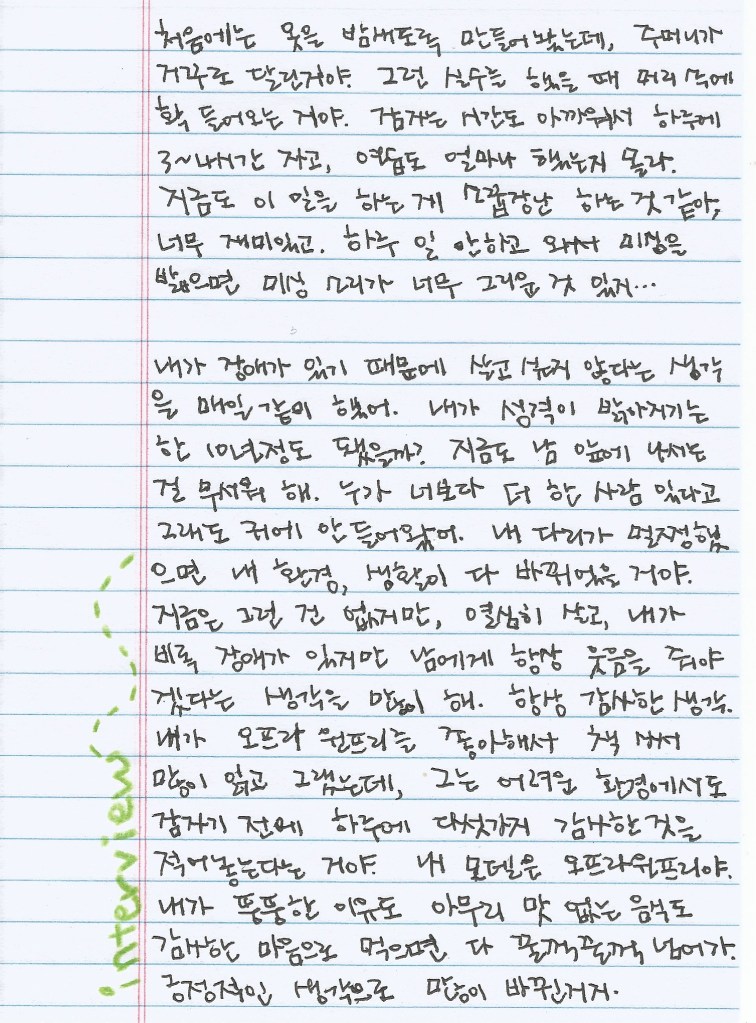 처음에는 옷을 밤새도록 만들어 놨는데, 주머니가
거꾸로 달린거야. 그런 실수를 했을 때 머리 속에
확 들어오는 거야. 잠자는 시간도 아까워서 하루에
3~4시간 자고, 연습도 얼마나 했는지 몰라.
지금도 이 일을 하는 게 소꿉장난 하는 것 같아,
너무 재미있고. 하루 일 안하고 와서 미싱을
밟으면 미싱 소리가 너무 그리운 것 있지...
내가 장애가 있기 때문에 살고 싶지 않다는 생각
을 매일같이 했어. 내가 성격이 밝아지기는
한 10년정도 됐을까? 지금도 남 앞에 나서는
걸 무서워 해. 누가 너보다 더 한 사람 있다고
그래도 귀에 안 들어왔어. 내 다리가 멀쩡했
으면 내 환경, 생활이 다 바뀌었을 거야.
지금은 그런 건 없지만, 열심히 살고, 내가
비록 장애가 있지만 남에게 항상 웃음을 줘야
겠다는 생각을 많이 해. 항상 감사한 생각.
내가 오프라 윈프리를 좋아해서 책 사서
많이 읽고 그랬는데, 그는 어려운 환경에서도
잠자기 전에 하루에 다섯가지 감사한 것을
적어놓는다는 거야. 내 모델은 오프라윈프리야.
내가 뚱뚱한 이유도 아무리 맛 없는 음식도
감사한 마음으로 먹으면 다 꿀꺽꿀꺽 넘어가.
긍정적인 생각으로 많이 바뀐거지.
interview